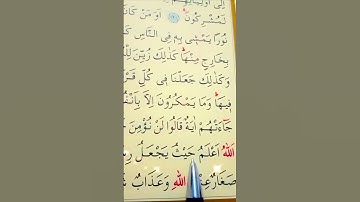 اِلٰٓى اَوْلِيَٓائِهِمْ
لَمُشْرِكُونَ ۟ اَوَ مَنْ كَانَ
نُورًا يَمْشٖى بِهٖ فِى النَّاسِ كَ
بِخَارِجٍ مِنْهَاۜ كَذٰلِكَ زُيِّنَ لِلْ
وَكَذٰلِكَ جَعَلْنَا فٖى كُلِّ قَرْ
فٖيهَاۜ وَمَا يَمْكُرُونَ اِلَّا بِاَنْفُ
جَٓاءَتْهُمْ اٰيَةٌ قَالُوا لَنْ نُؤْمِنَ
اَللّٰهُ اَعْلَمُ حَيْثُ يَجْعَلُ رِسَ
صَغَارٌ عِنْدَ اللّٰهِ وَعَذَابٌ شَ